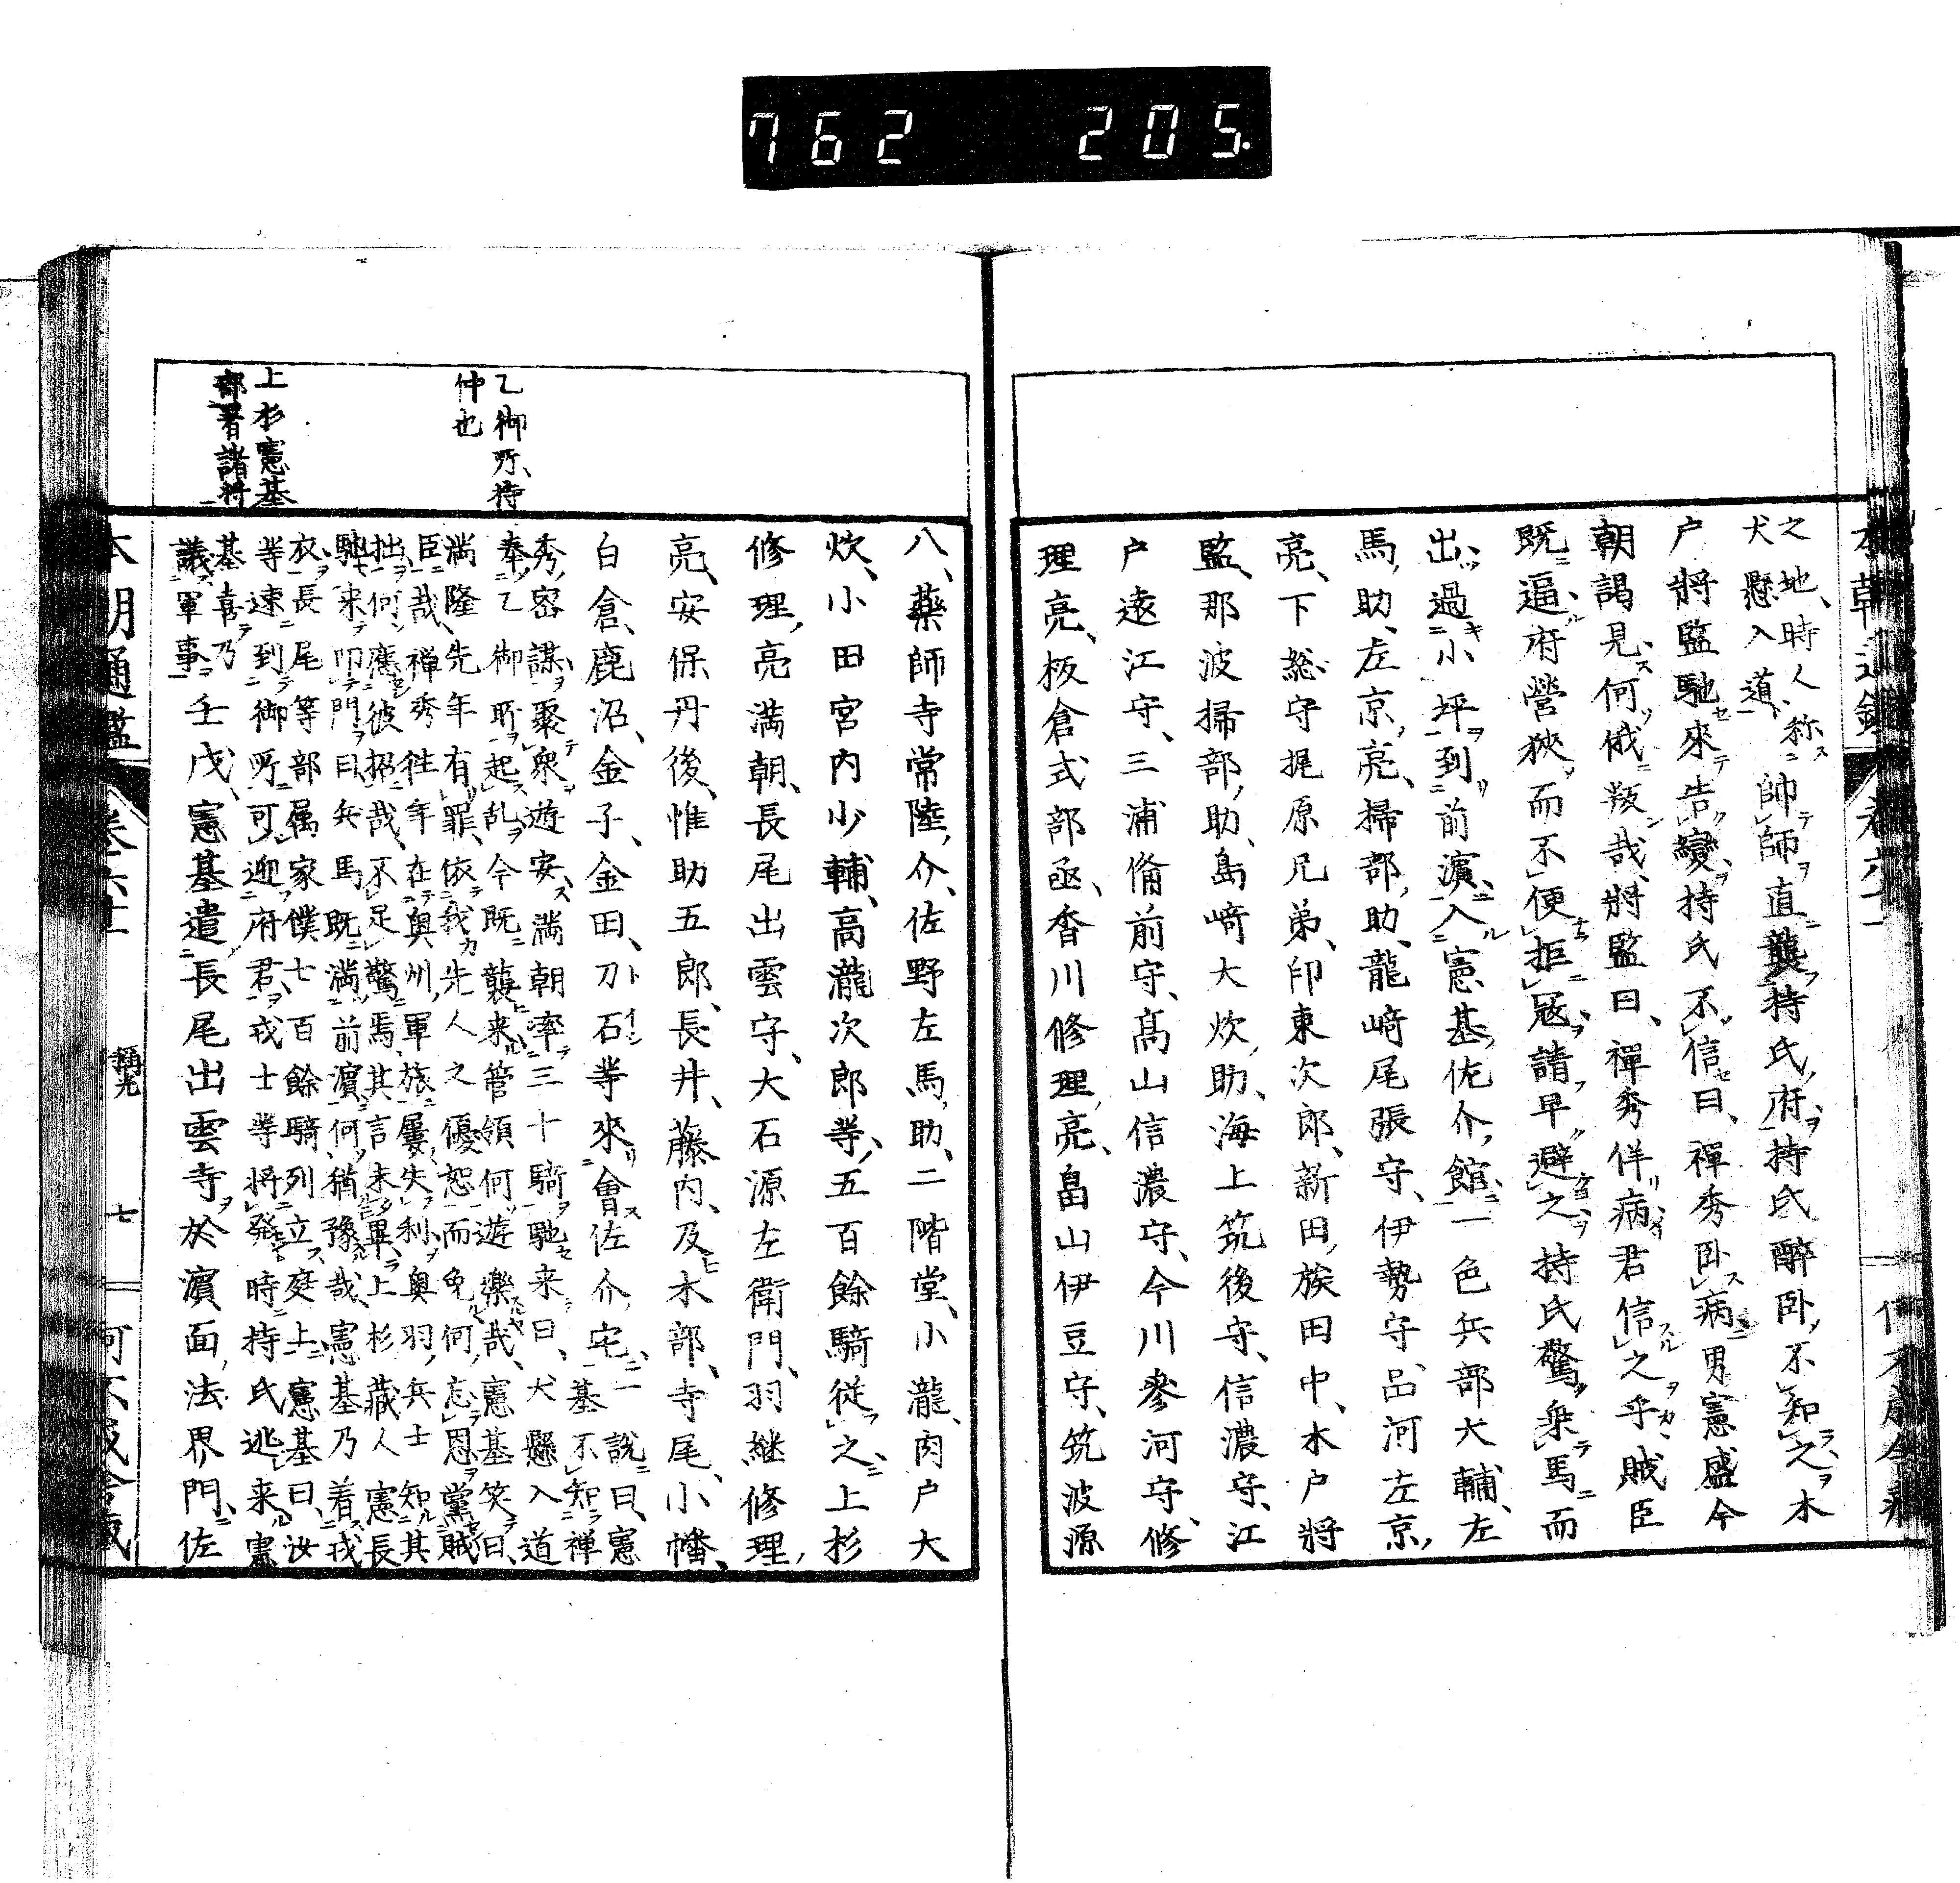 762 205.
之地、時人称
犬懸入道、
帥師直襲持氏府、持氏醉卧、不知之木
户將監馳來告變、持氏不信曰、禪秀卧病男憲盛今
朝謁見何俄叛哉、將監曰、禪秀佯病君信之乎、賊臣
既逼府營狹而不便拒寇請早避之持氏驚乗馬而
出過小坪到前濱入憲基佐介館一色兵部大輔、左
馬助、左京亮、掃部助、龍崎尾張守、伊勢守、品河左京
亮、下総守梶原兄弟、印東次郎、新田族田中、木户將
監、那波掃部助、島崎大炊助、海上筑後守、信濃守、江
户遠江守、三浦備前守、高山信濃守、今川參河守、修
理亮、板倉式部丞、香川修理亮、畠山伊豆守、筑波源
八、藥師寺常陸介、佐野左馬助、二階堂、小瀧、宍户大
炊、小田宮内少輔、高瀧次郎等、五百餘騎從之、上杉
修理亮満朝、長尾出雲守、大石源左衛門、羽継修理
亮、安保丹後、惟助五郎、長井、藤内、及木部、寺尾、小幡、
白倉、鹿沼、金子、金田、刀石等來會佐介宅、
一說曰、憲
基不知禅
秀密謀聚衆遊安、満朝率三十騎馳来曰、犬懸入道
奉乙御所起乱今既襲来管領何遊樂哉、憲基笑曰、
満隆先年有罪、依我先人之優恕而免何忘恩黨賊
臣哉、禅秀往年在奥州軍旅屢失利奥羽兵士知其
拙何應彼招哉、不足驚焉、其言未畢、上杉藏人憲長
馳来叩門曰兵馬既満前濱何猶豫哉、憲基乃着戎
衣、長尾等部属家僕七百餘騎列立庭上憲基曰、汝
等速到御所可迎府君、戎士等将発時持氏逃来憲
基喜乃
議軍事
壬戌、憲基遣長尾出雲寺於濱面法界門、佐
乙御所、持
仲也
上杉憲基
部署諸将
稱光
七